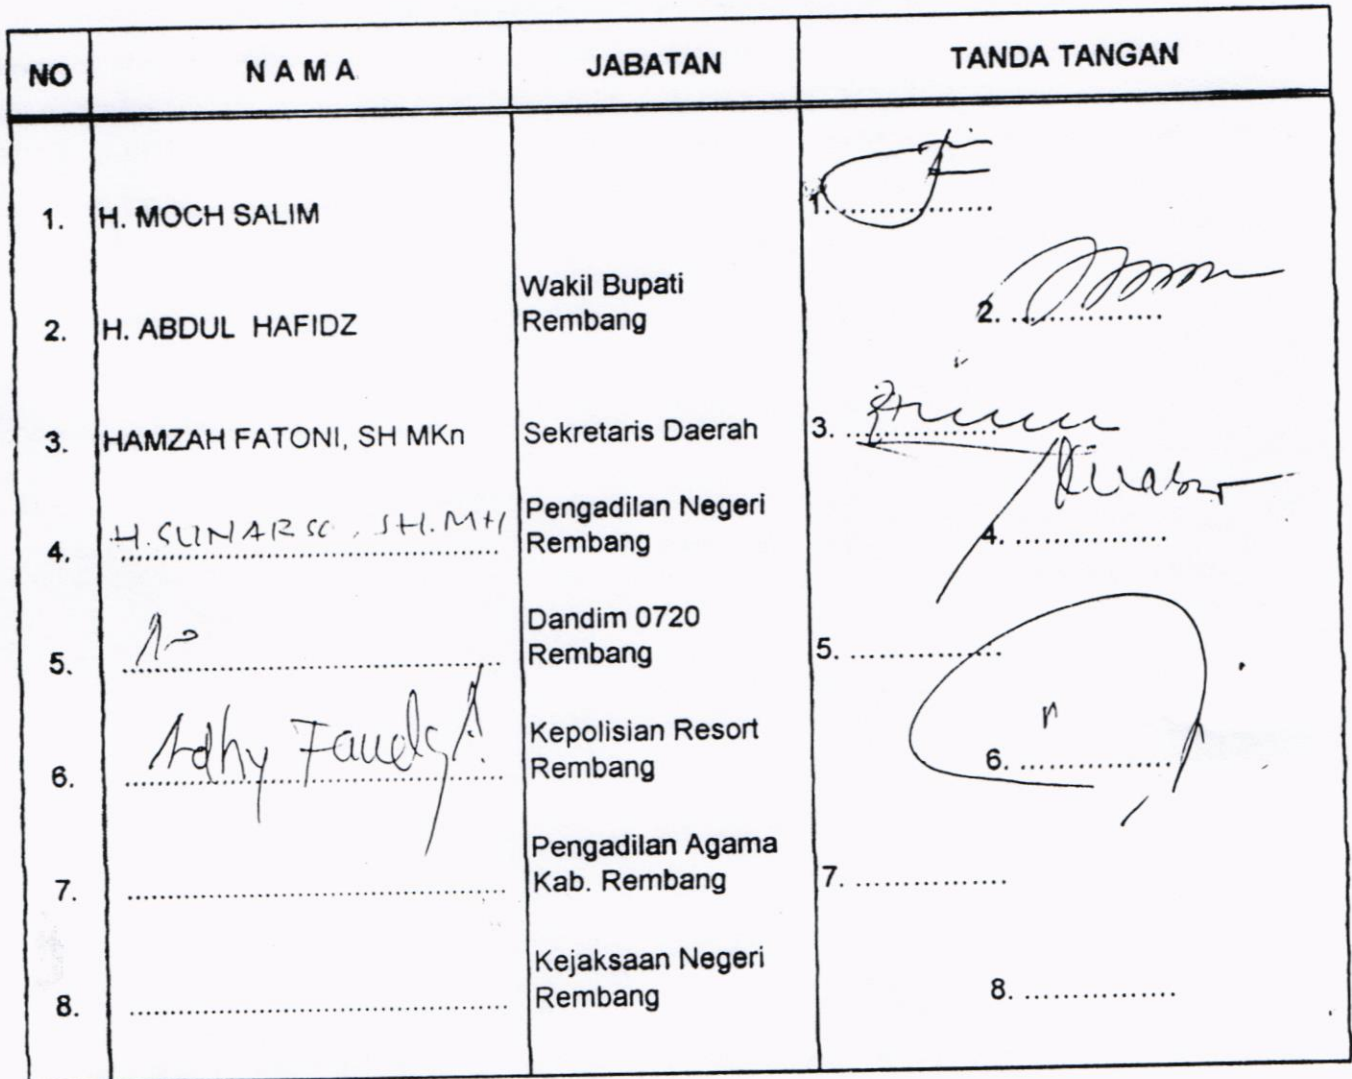 NO NAMA JABATAN TANDA TANGAN
1. H. MOCH SALIM 1. ..................
2. H. ABDUL HAFIDZ Wakil Bupati
Rembang 2. ..................
3. HAMZAH FATONI, SH MKn Sekretaris Daerah 3. ..................
4. H. SUNARSO, SH.MH Pengadilan Negeri
Rembang 4. ..................
5. Dandim 0720
Rembang 5. ..................
6. Adhy Kepolisian Resort
Rembang 6. ..................
7. .................. Pengadilan Agama
Kab. Rembang 7. ..................
8. .................. Kejaksaan Negeri
Rembang 8. ..................